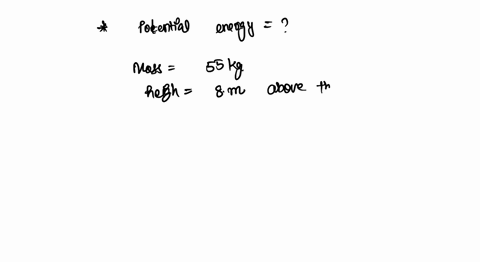 * Potential energy = ?
Mass = 55 kg
heigh = 8 m above th